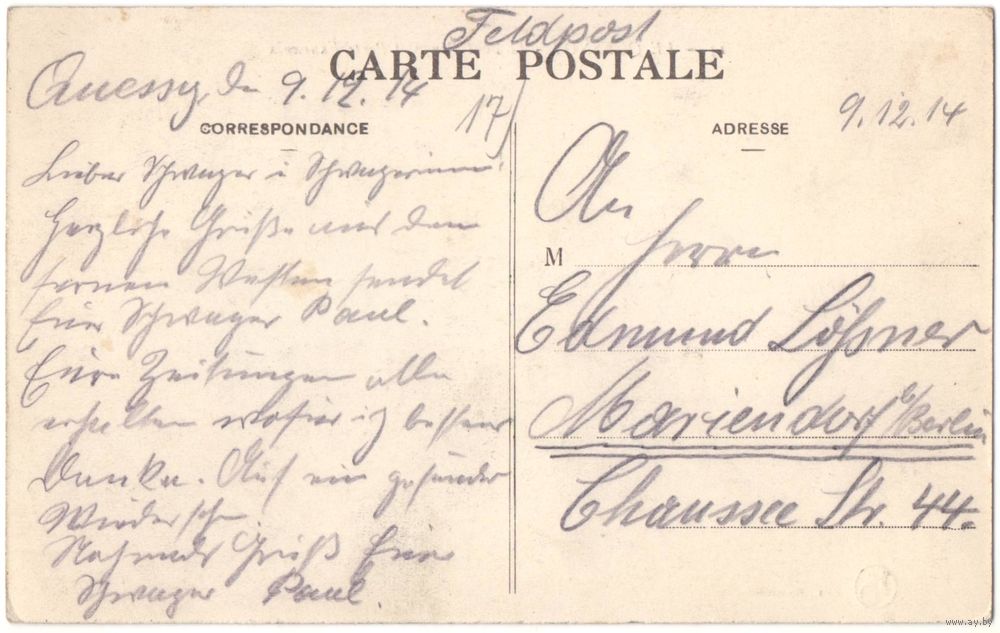 Feldpost
CARTE POSTALE
Quessy, den 9.12.14
17
9.12.14
CORRESPONDANCE
ADRESSE
Lieber Schwager u Schwägerinn!
Herzliche Grüße aus dem
fernen Westen sendet
Euer Schwager Paul.
Eure Zeitungen alle
erhalten wofür ich bestens
Danke. Auf ein gesundes
Wiedersehn
Nochmals Gruß Euer
Schwager Paul.
An
M Herrn
Edmund Lößner
Mariendorf b/Berlin
Chaussee Str. 44.
www.ay.by